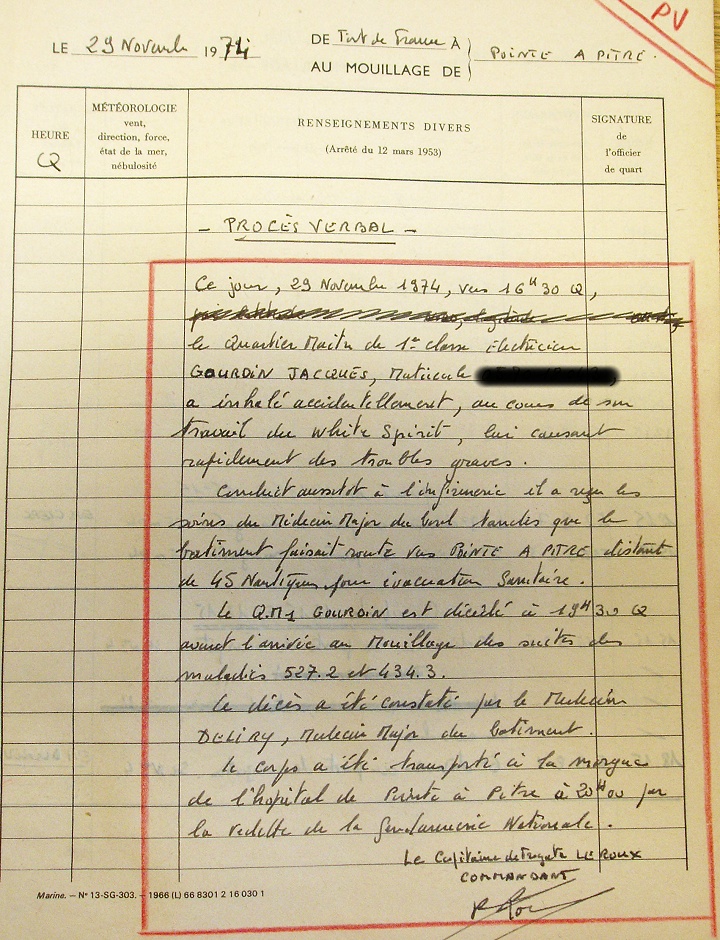 PV
LE 29 Novembre 1974 DE Fort de France À
AU MOUILLAGE DE POINTE A PITRE.
HEURE
Q
MÉTÉOROLOGIE
vent,
direction, force,
état de la mer,
nébulosité
RENSEIGNEMENTS DIVERS
(Arrêté du 12 mars 1953)
SIGNATURE
de
l'officier
de quart
- PROCÈS VERBAL -
Ce jour, 29 Novembre 1974, vers 16H30 Q,
le Quartier Maitre de 1e classe Electricien
GOURDIN JACQUES, Matricule
a inhalé accidentellement, au cours de son
travail du White Spirit, lui causant
rapidement des troubles graves.
Conduit aussitot à l'infirmerie il a reçu les
soins du Médecin Major du bord tandis que le
batiment faisait route vers POINTE A PITRE distant
de 45 Nautiques pour évacuation Sanitaire.
Le QM1 GOURDIN est décédé à 19H30 Q
avant l'arrivée au Mouillage des suites des
maladies 527.2 et 434.3.
Le décès a été constaté par le Medecin
DELIRY, Medecin Major du batiment.
Le corps a été transporté à la morgue
de l'hôpital de Pointe à Pitre à 20H00 par
la vedette de la Gendarmerie Nationale.
Le Capitaine de fregate LE ROUX
COMMANDANT
Marine. — N° 13-SG-303. — 1966 (L) 66 8301 2 16 030 1